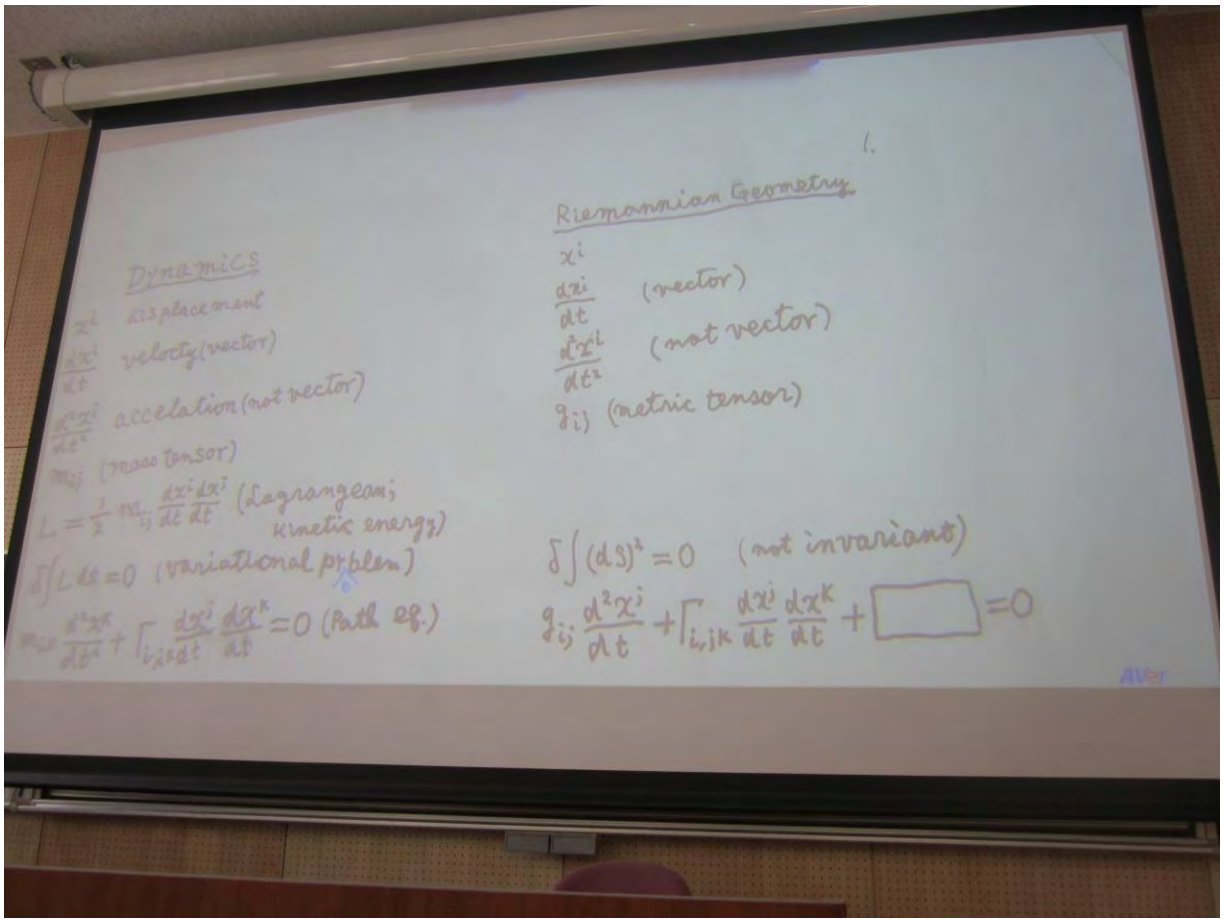 1.
Dynamics
x^i displacement
dx^i/dt velocty (vector)
d²x^i/dt² accelation (not vector)
m_ij (mass tensor)
L = 1/2 m_ij dx^i/dt dx^j/dt (Lagrangean;
kinetic energy)
δ∫L dt = 0 (variational prblem)
o
m_ik d²x^k/dt² + Γ_i,jk dx^j/dt dx^k/dt = 0 (Path eq.)
Riemannian Geometry
x^i
dx^i/dt (vector)
d²x^i/dt² (not vector)
g_ij (metric tensor)
δ∫(ds)² = 0 (not invariant)
g_ij d²x^j/dt + Γ_i,jk dx^j/dt dx^k/dt + □ = 0
AVer